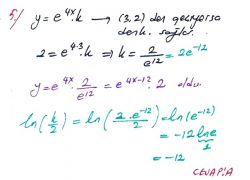 5/ y = e^{4x}.k → (3,2) den geçiyorsa
denk. sağlar.
2 = e^{4.3}.k ⇒ k = 2/e^{12} = 2e^{-12}
y = e^{4x}.2/e^{12} = e^{4x-12}.2 oldu.
ln(k/2) = ln(2.e^{-12}/2) = ln(e^{-12})
= -12 lne
1
= -12
CEVAP: A